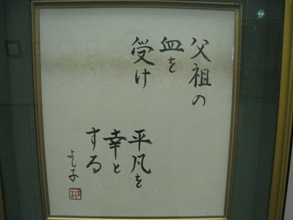 父祖の
血を
受け
平凡を
幸と
する